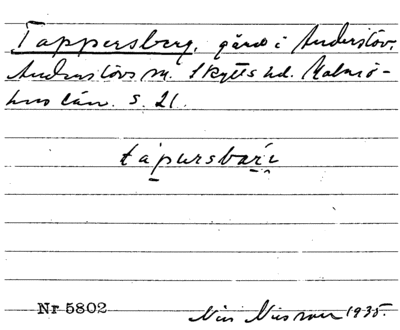 Tappersberg, gård i Anderslöv,
Anderslövs sn. Skytts hd. Malmö-
hus län. s. 21.
tápursbarʹi
Nr 5802 Nils Nilsson 1935.